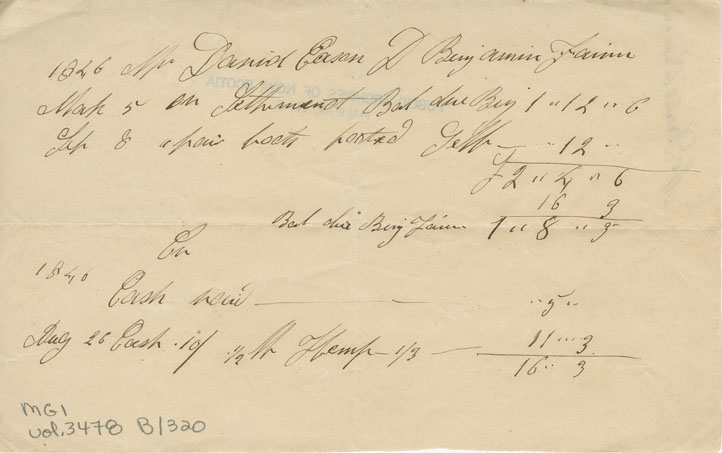 1846 Mr Daniel Eason D Benjamin Fainn
Mah 5 on Settlement Bal due Benj 1 " 12 " 6
Sep 8 a pair boots Self - " 12 "
£ 2 " 4 " 6
16 3
Bal due Benj Fainn 1 " 8 " 3
Cr
1846
Cash paid - " 5 "
Aug 26 Cash 10/ 1/2 lb Hemp 1/3 - 11 " 3
16 " 3
PUBLIC ARCHIVES OF NOVA SCOTIA
MG1
vol. 3478 B/320